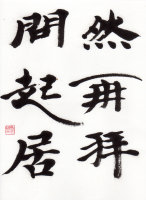 然再拜
問起居